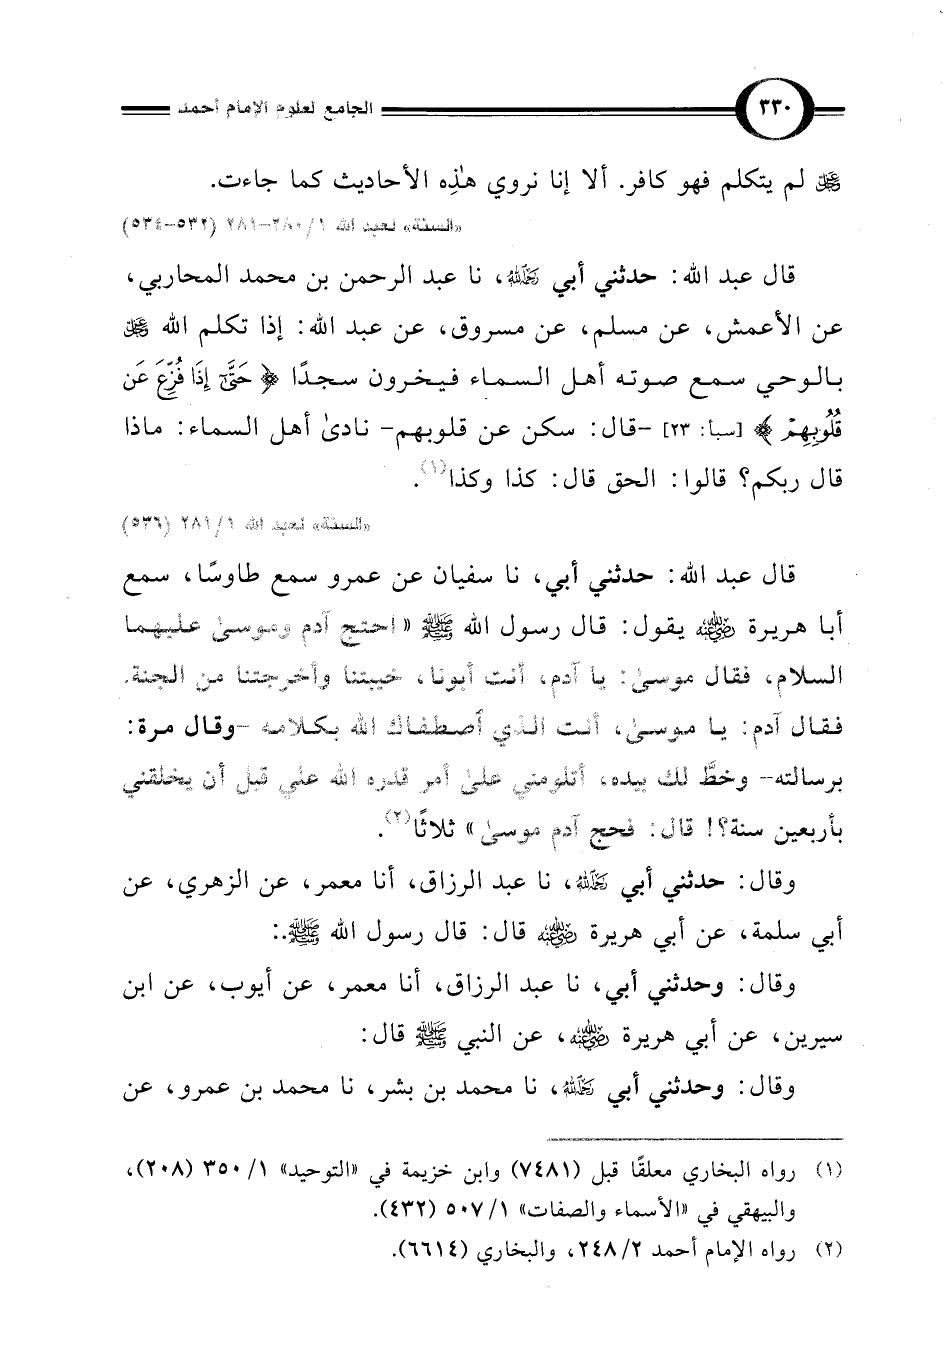 ٣٣٠ الجامع لعلوم الإمام أحمد
ﷻ لم يتكلم فهو كافر. ألا إنا نروي هذِه الأحاديث كما جاءت.
«السنة» لعبد الله ١/ ٢٨٠-٢٨١ (٥٣٢-٥٣٤)
قال عبد الله: حدثني أبي رَحِمَهُ اللهُ، نا عبد الرحمن بن محمد المحاربي،
عن الأعمش، عن مسلم، عن مسروق، عن عبد الله: إذا تكلم الله ﷻ
بالوحي سمع صوته أهل السماء فيخرون سجدًا ﴿حَتَّىٰٓ إِذَا فُزِّعَ عَن
قُلُوبِهِمْ﴾ [سبأ: ٢٣] -قال: سكن عن قلوبهم- نادىٰ أهل السماء: ماذا
قال ربكم؟ قالوا: الحق قال: كذا وكذا(١).
«السنة» لعبد الله ١/ ٢٨١ (٥٣٦)
قال عبد الله: حدثني أبي، نا سفيان عن عمرو سمع طاوسًا، سمع
أبا هريرة رَضِيَ اللهُ عَنْهُ يقول: قال رسول الله ﷺ «احتج آدم وموسىٰ عليهما
السلام، فقال موسىٰ: يا آدم، أنت أبونا، خيبتنا وأخرجتنا من الجنة.
فقال آدم: يا موسىٰ، أنت الذي ٱصطفاك الله بكلامه -وقال مرة:
برسالته- وخطَّ لك بيده، أتلومني علىٰ أمر قدره الله علي قبل أن يخلقني
بأربعين سنة؟! قال: فحج آدم موسىٰ» ثلاثًا(٢).
وقال: حدثني أبي رَحِمَهُ اللهُ، نا عبد الرزاق، أنا معمر، عن الزهري، عن
أبي سلمة، عن أبي هريرة رَضِيَ اللهُ عَنْهُ قال: قال رسول الله ﷺ.:
وقال: وحدثني أبي، نا عبد الرزاق، أنا معمر، عن أيوب، عن ابن
سيرين، عن أبي هريرة رَضِيَ اللهُ عَنْهُ، عن النبي ﷺ قال:
وقال: وحدثني أبي رَحِمَهُ اللهُ، نا محمد بن بشر، نا محمد بن عمرو، عن
(١) رواه البخاري معلقًا قبل (٧٤٨١) وابن خزيمة في «التوحيد» ١/ ٣٥٠ (٢٠٨)،
والبيهقي في «الأسماء والصفات» ١/ ٥٠٧ (٤٣٢).
(٢) رواه الإمام أحمد ٢/ ٢٤٨، والبخاري (٦٦١٤).